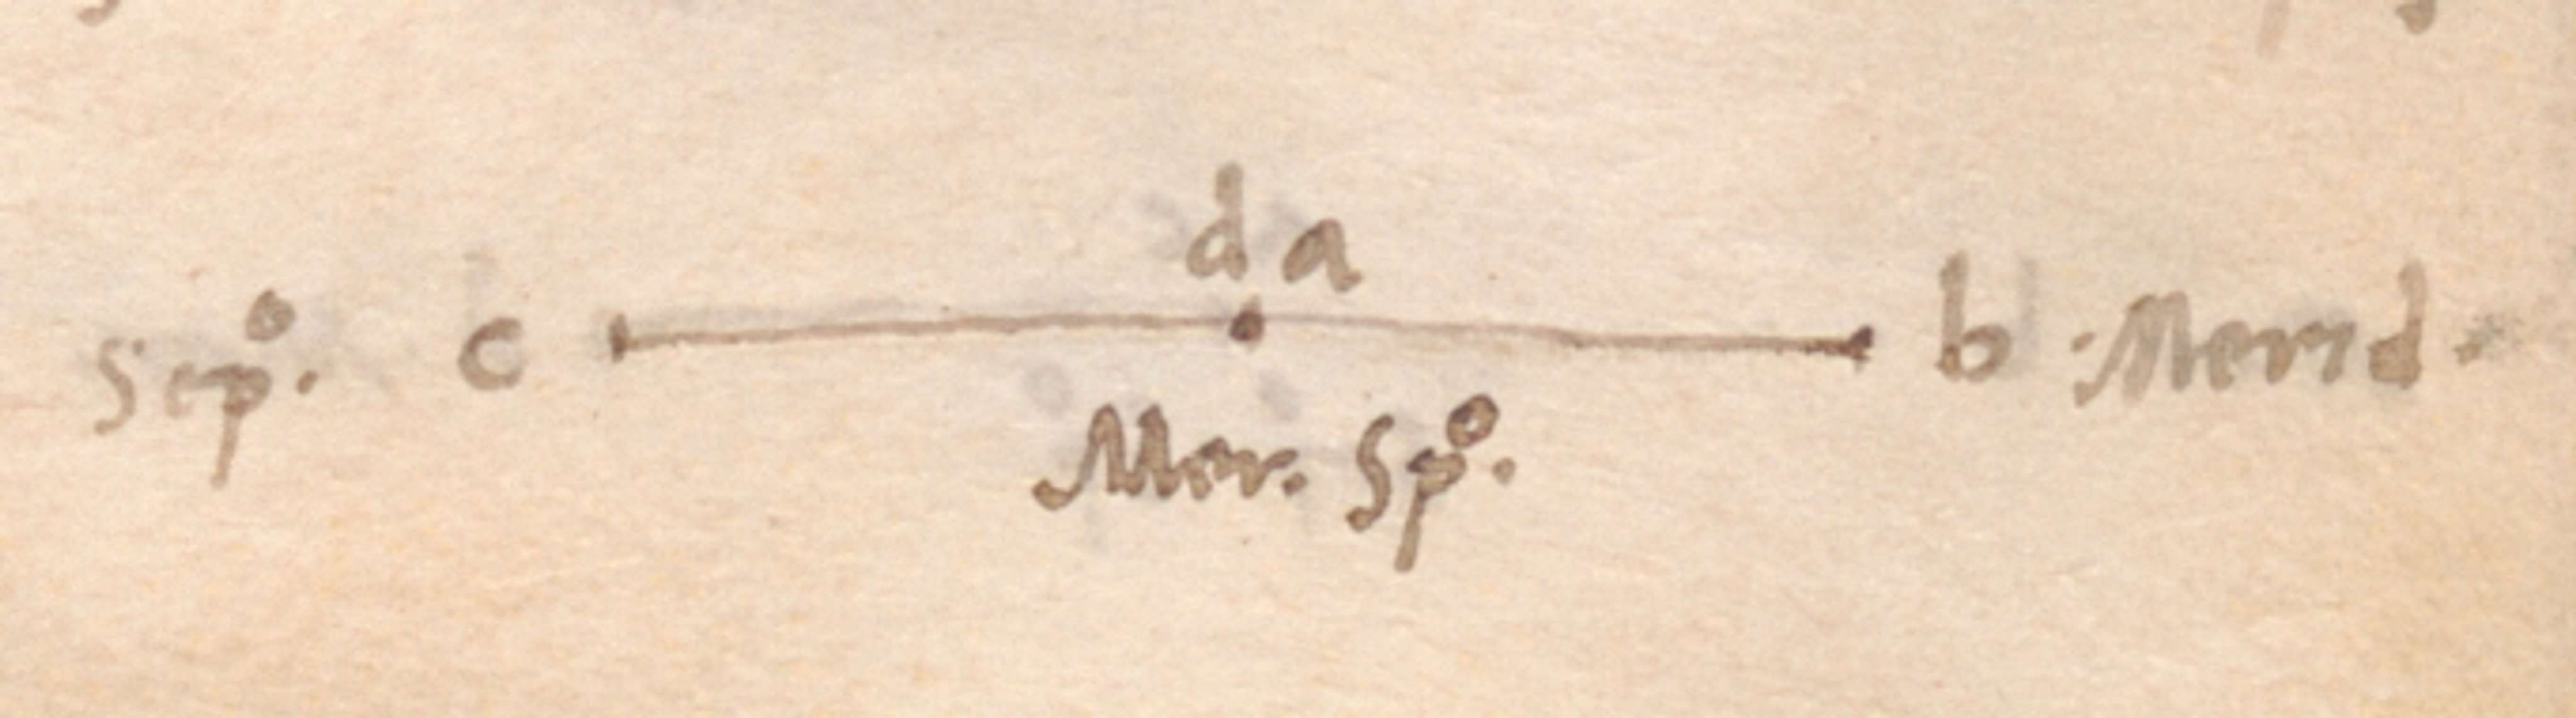 d a
Sepº. c b. Merid.
Mer. Spº.